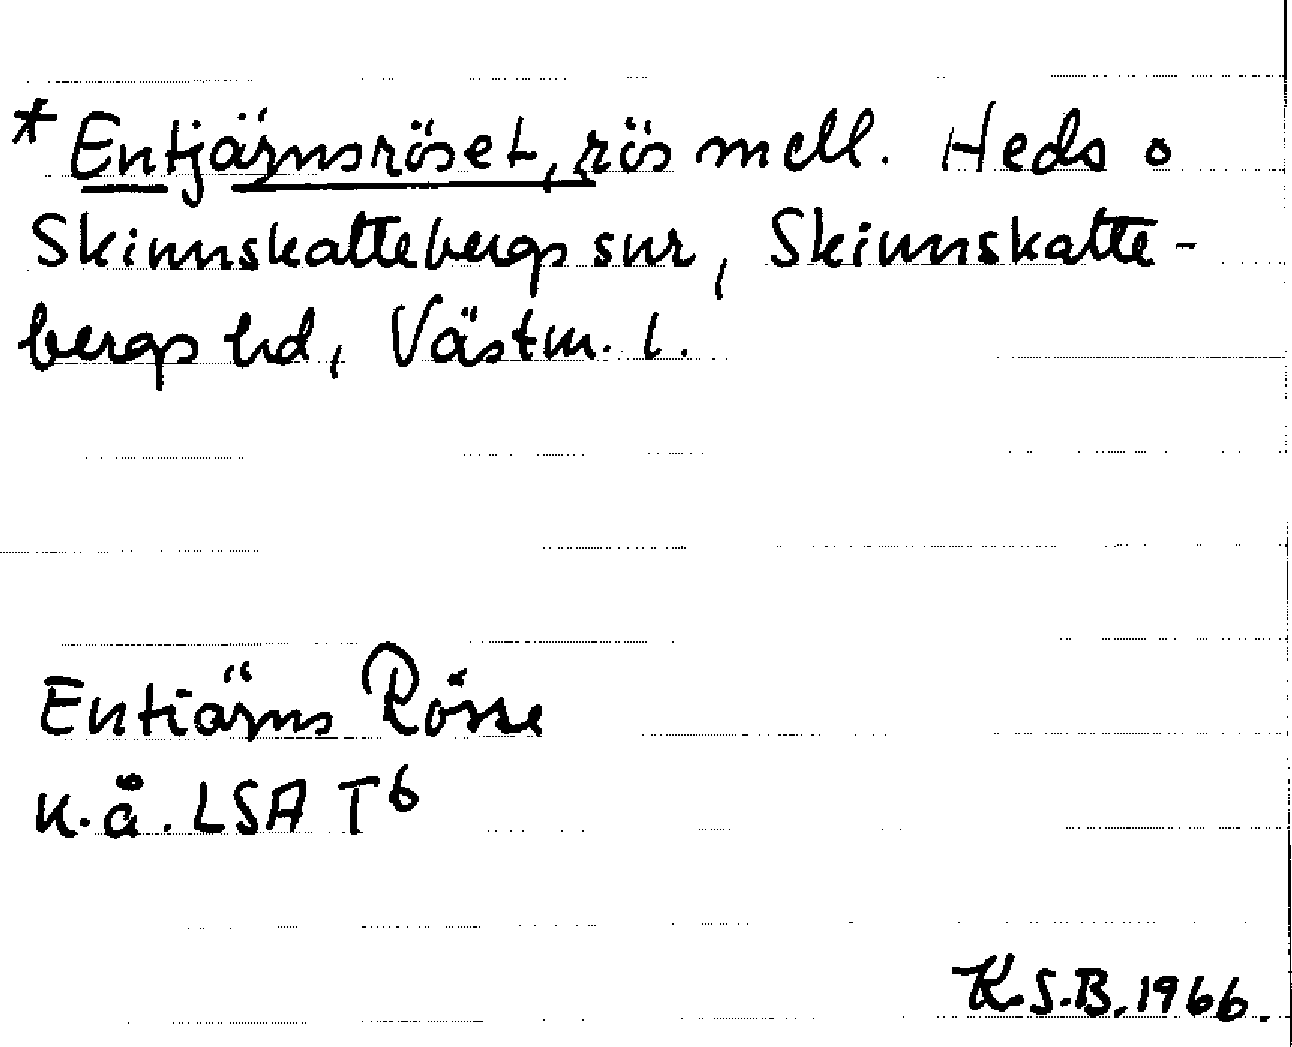 * Entjärnsröset, rös mell. Heds o
Skinnskattebergs snr, Skinnskatte-
bergs hd, Västm. l.
Entiärns Rösse
u.å. LSA T6
K.S.B. 1966.